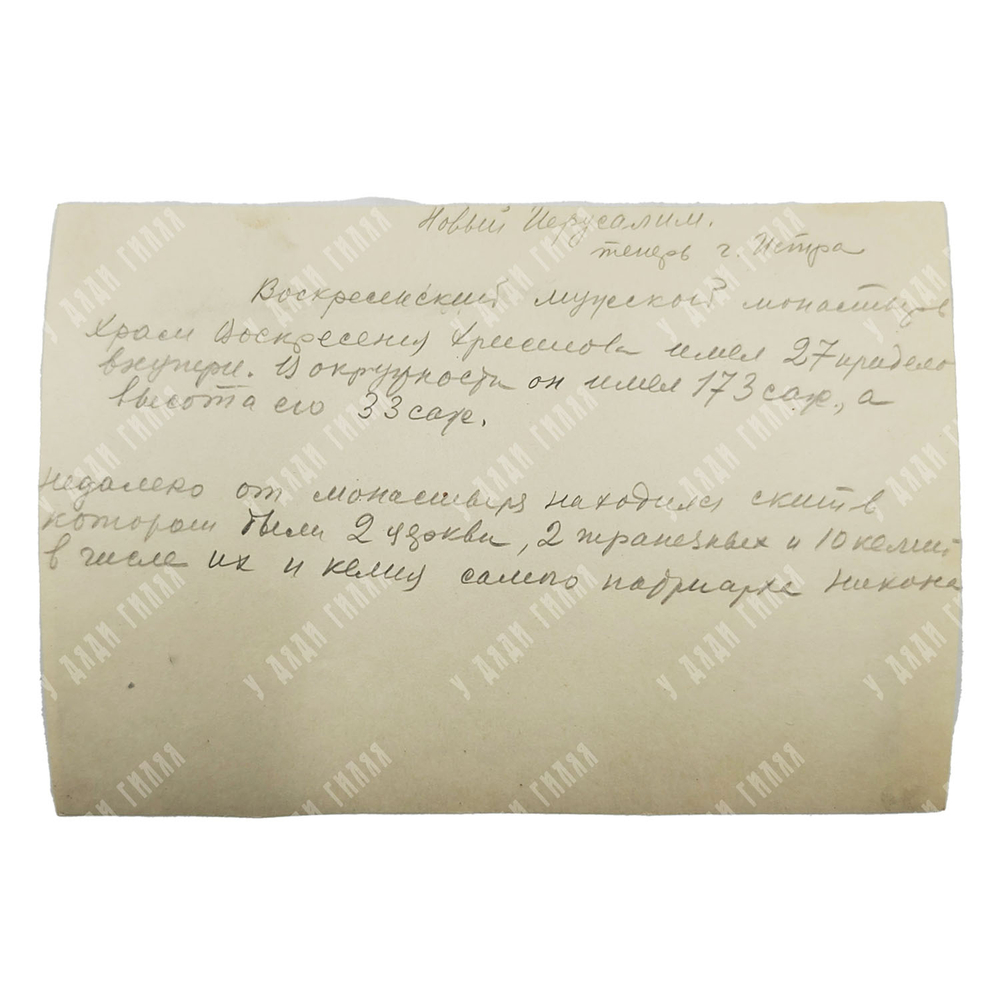 Новый Иерусалим.
теперь г. Истра
Воскресенский мужской монастырь
Храм Воскресения Христова имел 27 приделов
внутри. В окружности он имел 173 саж., а
высота его 33 саж.
Недалеко от монастыря находился скит в
котором были 2 церкви, 2 трапезных и 10 келий
в числе их и келия самого патриарха Никона
У ДЯДИ ГИЛЯЯ